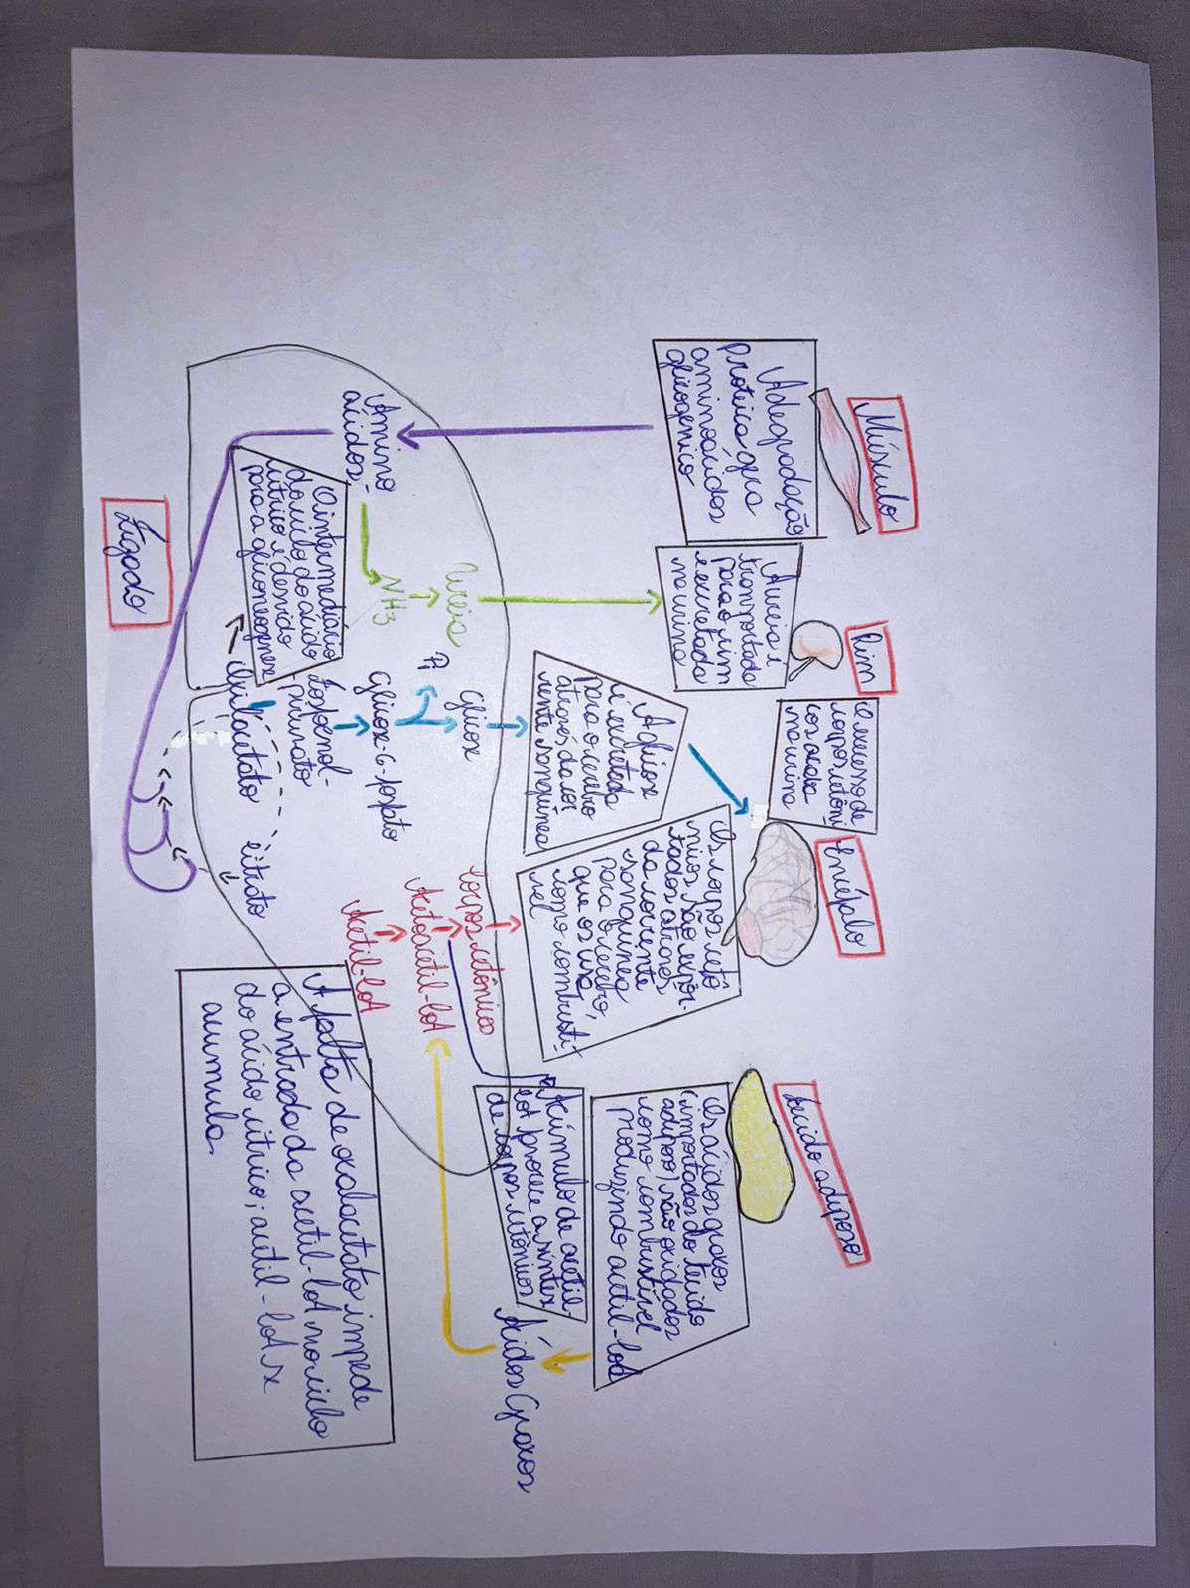 Músculo
A degradação
Proteica gera
aminoácidos
glicogenico
Rim
A ureia é
transportada
para o rim
e excretada
na urina
O excesso de
corpos cetôni-
cos acaba
na urina
Encéfalo
A glicose
é excretada
para o cerebro
através da cor
rente sanguínea
Os corpos cetô
nicos são expor-
tados através
da corrente
sanguínea
para o cerebro,
que os usa
como combustí-
vel
tecido adiposo
Os ácidos graxos
(importados do tecido
adiposo) são oxidados
como combustível
produzindo acetil-CoA
Amino
ácidos
NH3
Ureia
Pi
Glicose
Glicose-6-fosfato
fosfoenol-
piruvato
Oxilacetato
citrato
O intermediário
do ciclo do ácido
cítrico é desviado
para a gliconeogenese
Corpos cetônico
Acetoacetil-CoA
Acetil-CoA
Acúmulo de acetil-
CoA favorece a síntese
de corpos cetônicos
Ácidos Graxos
Fígado
A falta de oxalacetato impede
a entrada da acetil-CoA no ciclo
do ácido cítrico; acetil-CoA se
acumula.